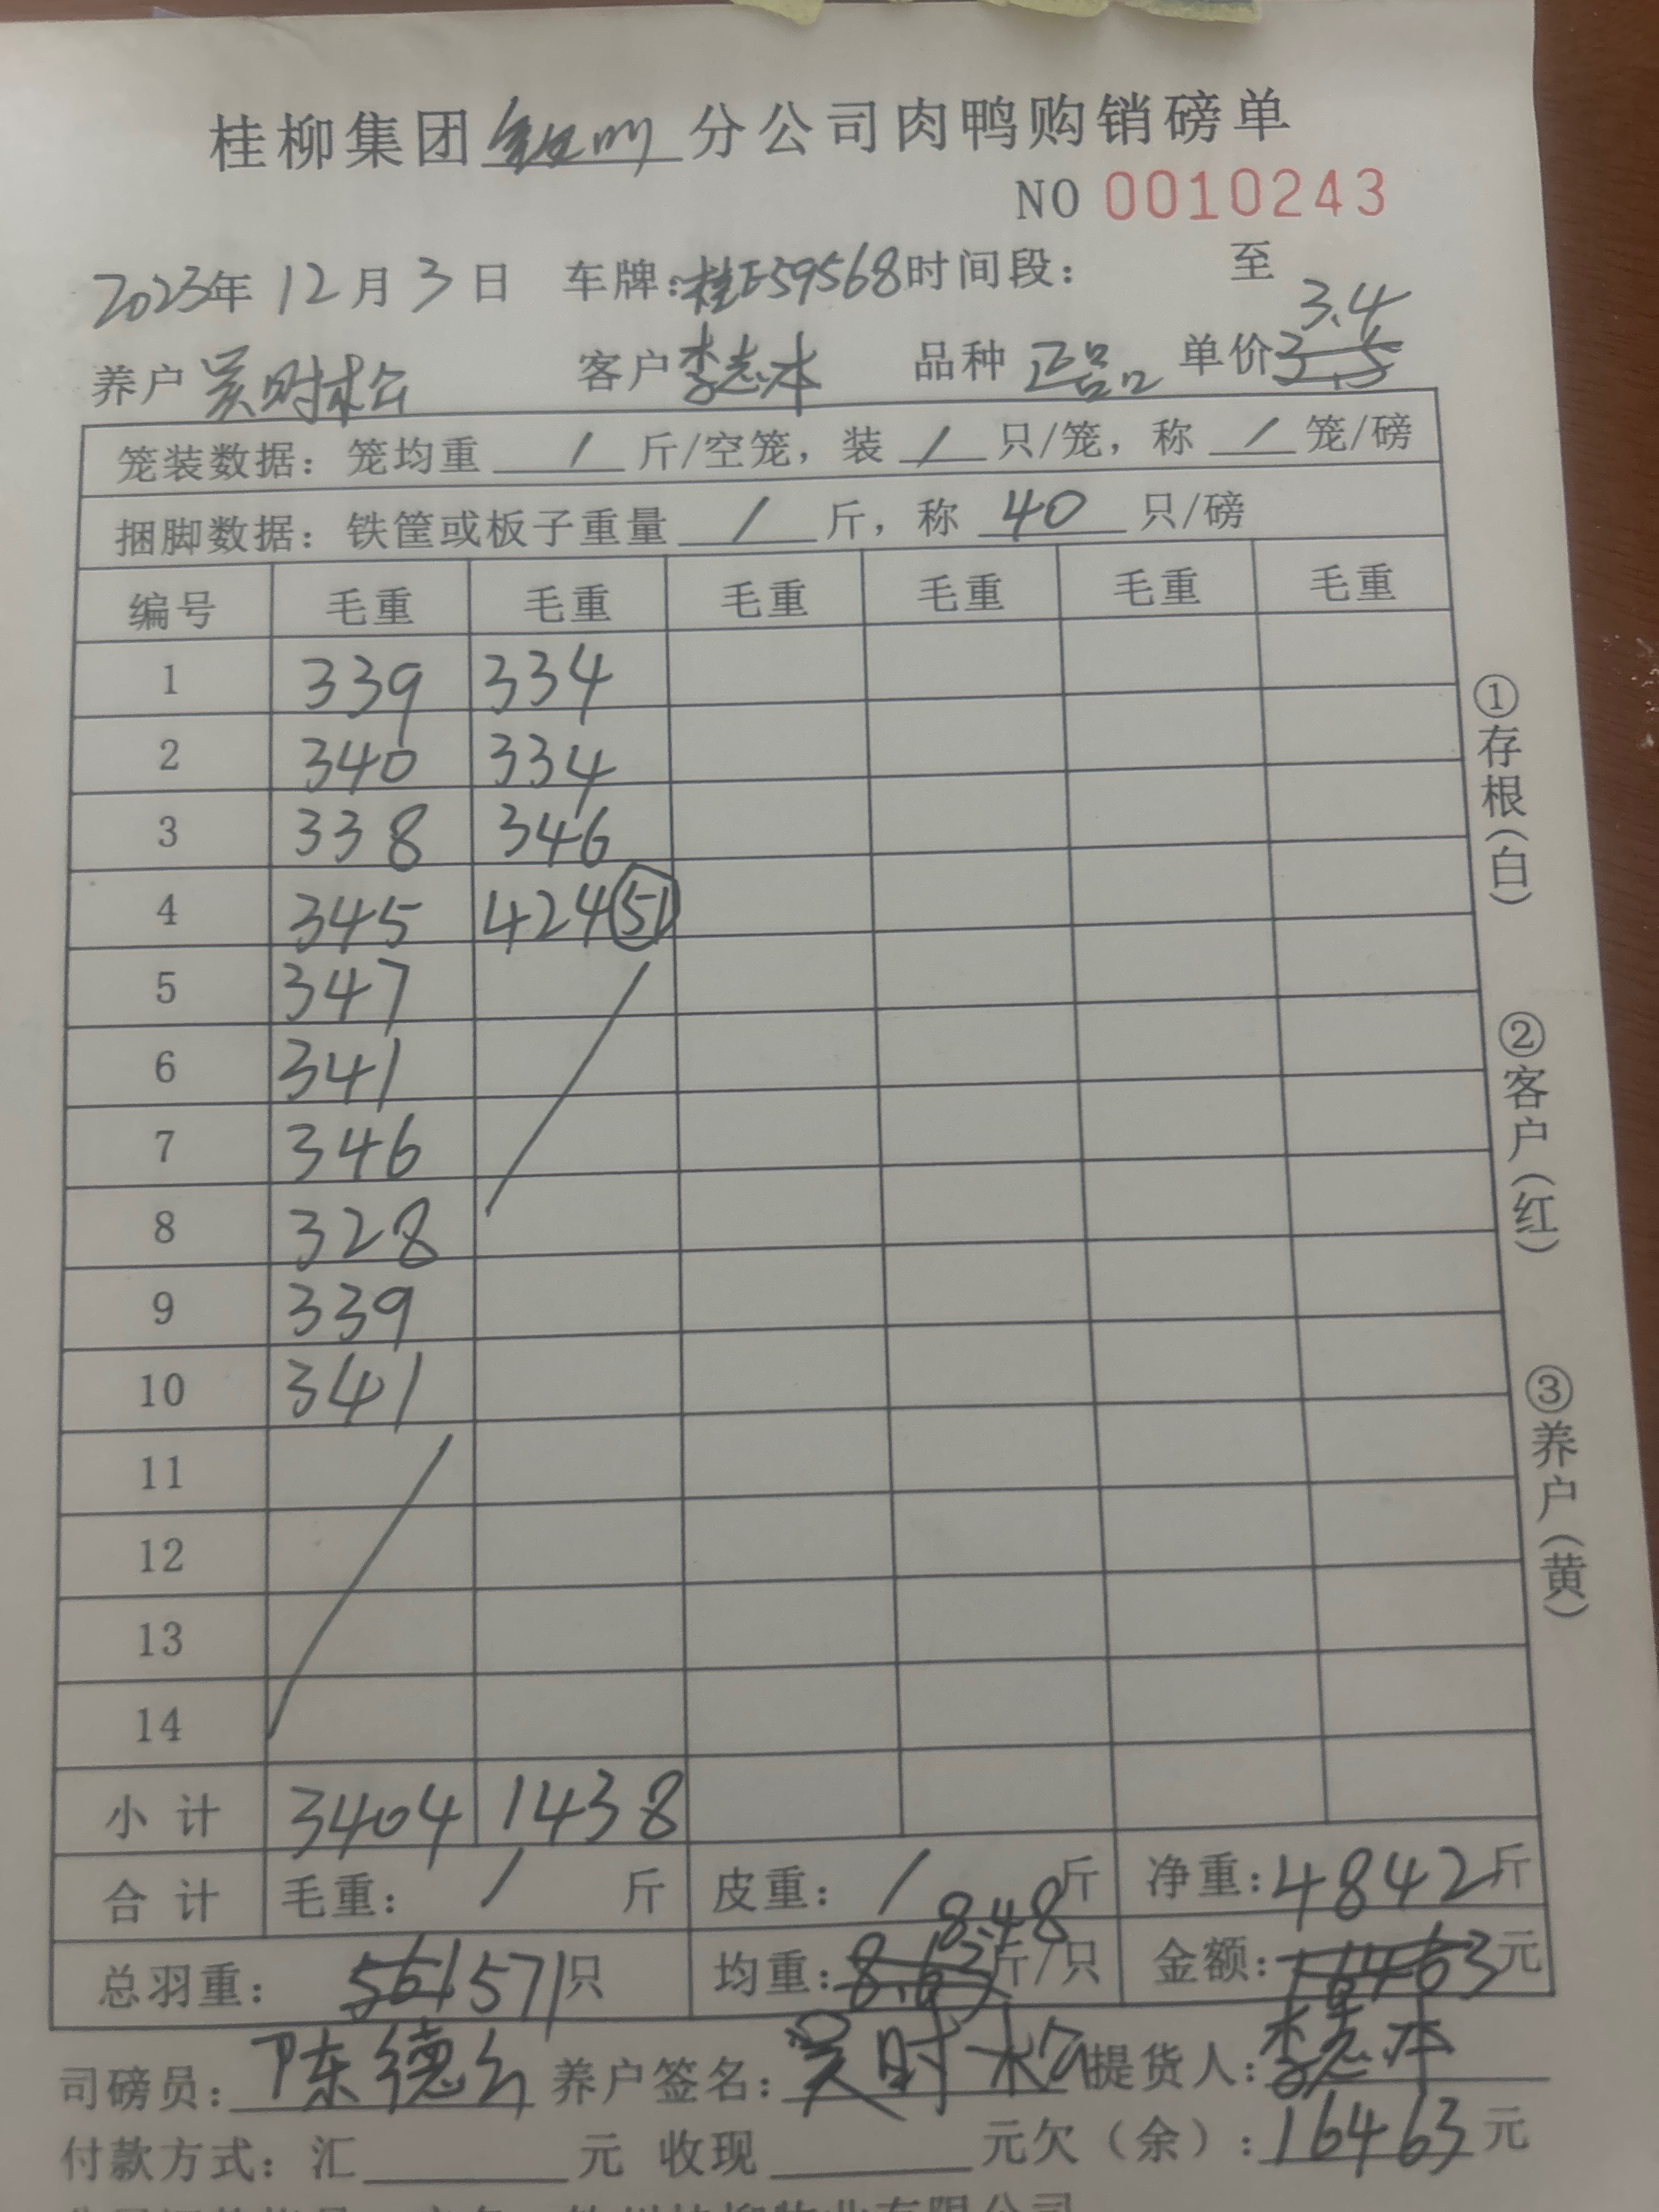 桂柳集团钦州分公司肉鸭购销磅单
NO 0010243
2023年 12月 3日 车牌:桂E59568 时间段: 至
3.4
养户 吴时松 客户 李志本 品种 正品 单价 3.5
笼装数据: 笼均重 / 斤/空笼, 装 / 只/笼, 称 / 笼/磅
捆脚数据: 铁筐或板子重量 / 斤, 称 40 只/磅
编号 毛重 毛重 毛重 毛重 毛重 毛重
1 339 334
2 340 334
3 338 346
4 345 424 51
5 347
6 341
7 346
8 328
9 339
10 341
11
12
13
14
小计 3404 1438
合计 毛重: / 斤 皮重: / 斤 净重:4842斤
8.48
总羽重: 561 571只 均重:8.63斤/只 金额:16463元
司磅员: 陈德 养户签名: 吴时松 提货人:李志本
付款方式: 汇 元 收现 元欠(余):16463元
①存根(白)
②客户(红)
③养户(黄)